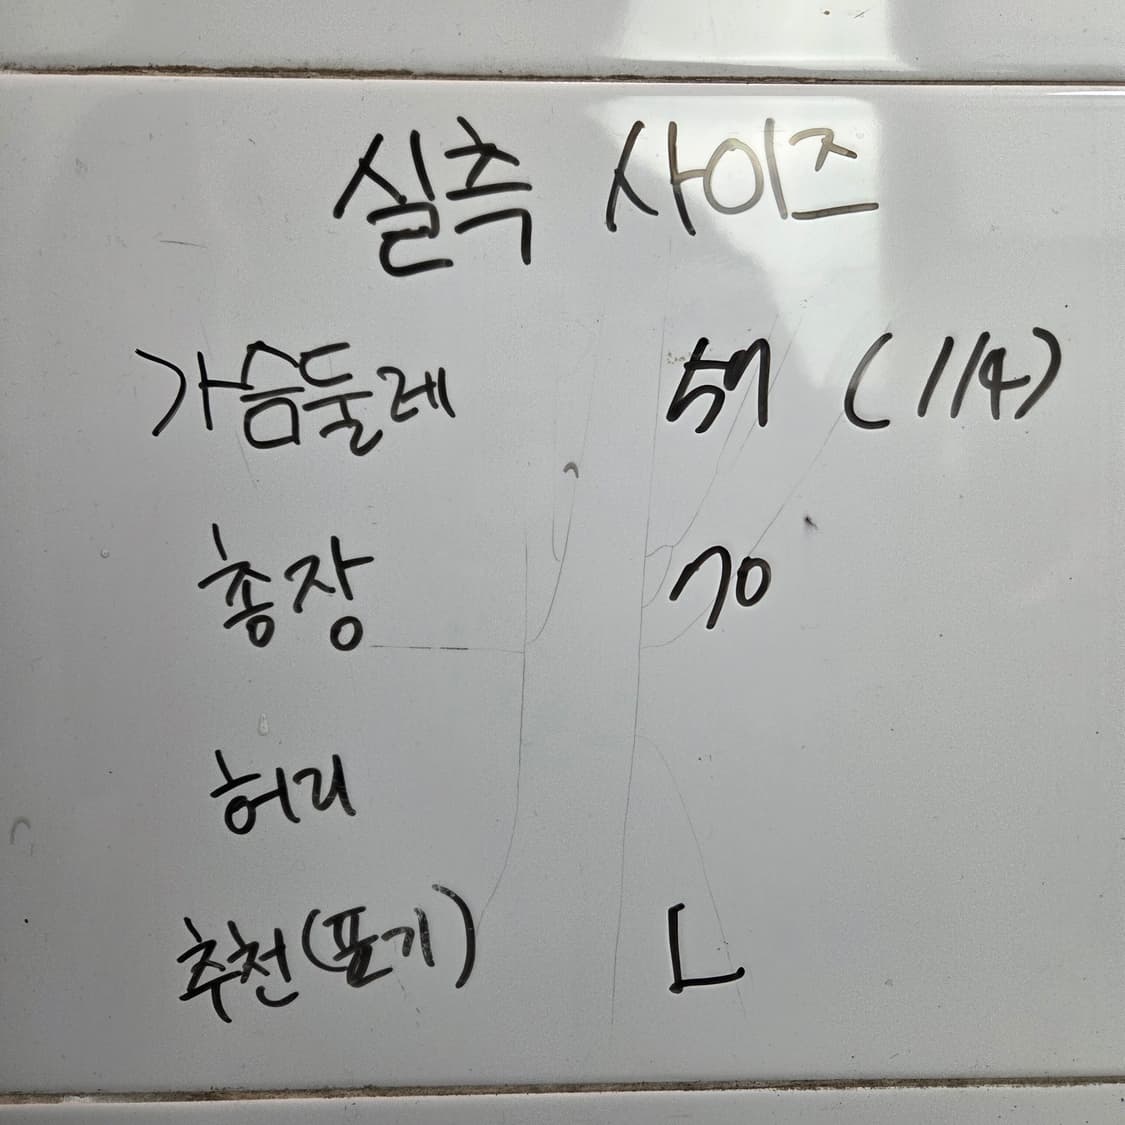 실측 사이즈
가슴둘레 57 (114)
총장 70
허리
추천(표기) L